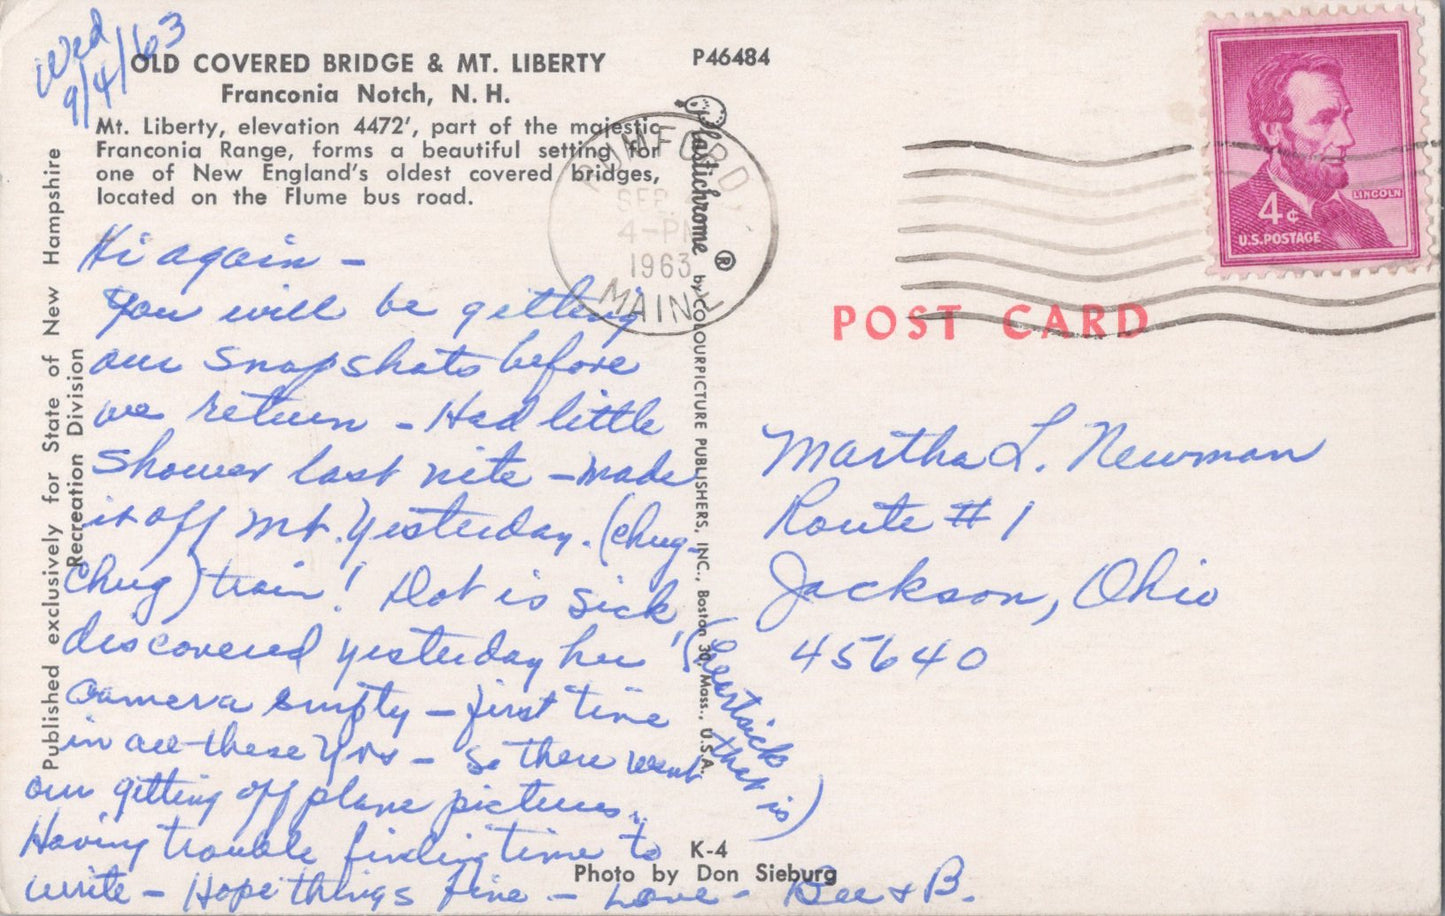 Wed
9/4/63
OLD COVERED BRIDGE & MT. LIBERTY
Franconia Notch, N. H.
Mt. Liberty, elevation 4472', part of the majestic
Franconia Range, forms a beautiful setting for
one of New England's oldest covered bridges,
located on the Flume bus road.
P46484
Published exclusively for State of New Hampshire
Recreation Division
Plastichrome ® by COLOURPICTURE PUBLISHERS, INC., Boston 30, Mass., U.S.A.
RUMFORD
SEP
4-PM
1963
MAINE
LINCOLN
4¢
U.S. POSTAGE
POST CARD
Hi again -
You will be getting
our snapshots before
we return - Had little
shower last nite - made
it off Mt. Yesterday. (chug-
chug) train! Dot is sick,
(heartsick
that is)
discovered yesterday her
camera empty - first time
in all these yrs - So there went
our getting off plane pictures.
Having trouble finding time to
write - Hope things fine - Love - Bee & B.
Martha L. Newman
Route #1
Jackson, Ohio
45640
K-4
Photo by Don Sieburg